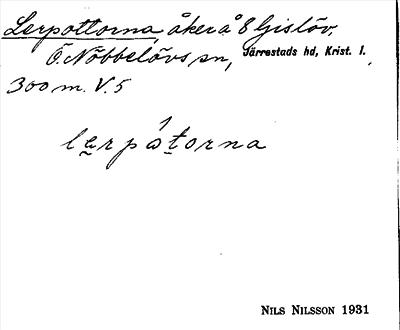 Lerpottorna, åker å 8 Gislöv,
Ö. Nöbbelövs sn, Järrestads hd, Krist. l.
300 m. V. 5
lerpåtorna
NILS NILSSON 1931